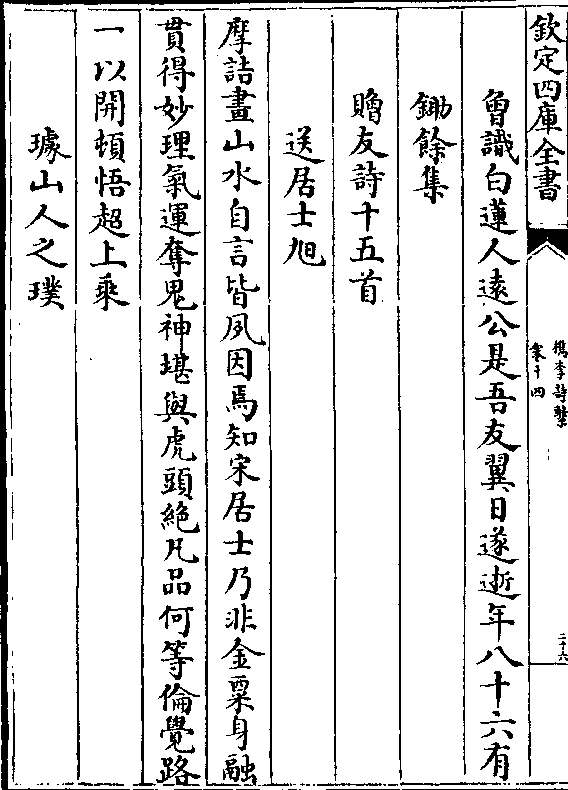 欽定四庫全書
檇李詩繫
卷十四
二十六
曾識白蓮人遠公是吾友翼日遂逝年八十六有
鋤餘集
贈友詩十五首
送居士旭
摩詰畫山水自言皆夙因焉知宋居士乃非金粟身融
貫得妙理氣運奪鬼神堪與虎頭絕凡品何等倫覺路
一以開頓悟超上乘
璩山人之璞